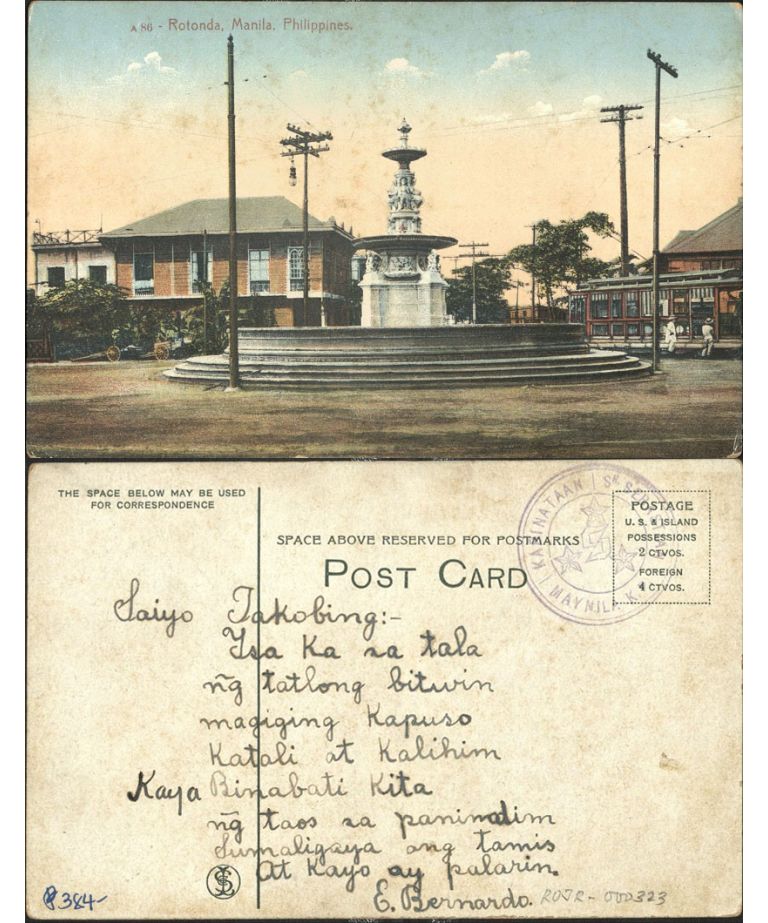 A 86 - Rotonda, Manila, Philippines.
THE SPACE BELOW MAY BE USED
FOR CORRESPONDENCE
SPACE ABOVE RESERVED FOR POSTMARKS
POST CARD
POSTAGE
U. S. & ISLAND
POSSESSIONS
2 CTVOS.
FOREIGN
4 CTVOS.
MAYNILA
Saiyo Jakobing:-
Isa Ka sa tala
ñg tatlong bitwin
magiging Kapuso
Katali at Kalihim
Kaya Binabati Kita
ñg taos sa panimdim
Sumaligaya ang tamis
At Kayo ay palarin.
E. Bernardo.
ROTR-000323
384-